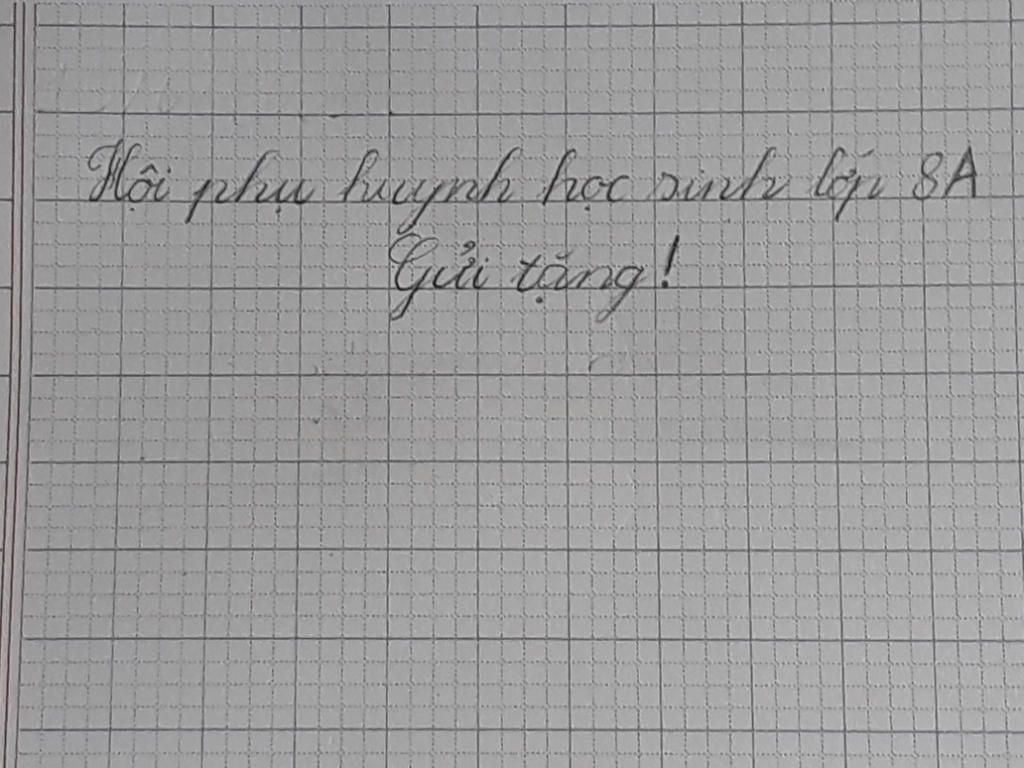 Hội phụ huynh học sinh lớp 8A
Gửi tặng!